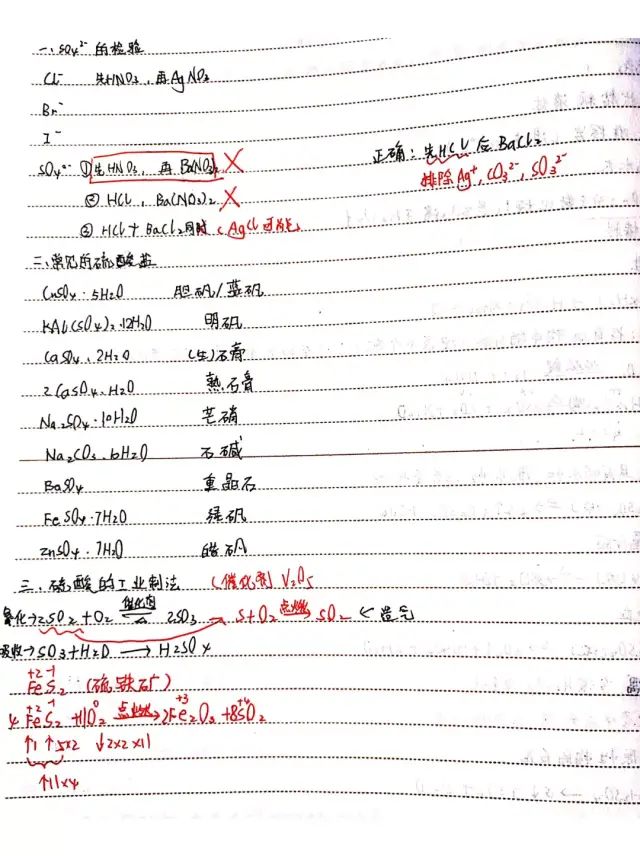 一、SO₄²⁻ 的检验
Cl⁻ 先HNO₃，再AgNO₃
Br⁻
I⁻
SO₄²⁻ ① 先HNO₃，再Ba(NO₃)₂ ×
正确：先HCl 后 BaCl₂
排除Ag⁺，CO₃²⁻，SO₃²⁻
② HCl，Ba(NO₃)₂ ×
③ HCl + BaCl₂同时（AgCl可能）
二、常见的硫酸盐
CuSO₄·5H₂O 胆矾/蓝矾
KAl(SO₄)₂·12H₂O 明矾
CaSO₄·2H₂O （生）石膏
2CaSO₄·H₂O 熟石膏
Na₂SO₄·10H₂O 芒硝
Na₂CO₃·10H₂O 石碱
BaSO₄ 重晶石
FeSO₄·7H₂O 绿矾
ZnSO₄·7H₂O 皓矾
三、硫酸的工业制法 （催化剂 V₂O₅
氧化→2SO₂+O₂ ⇌ 催化剂 △ 2SO₃ S+O₂ 点燃→ SO₂ < 造气
吸收→SO₃+H₂O → H₂SO₄
+2 -1
FeS₂ （硫铁矿）
+2 -1 0 +3 +4
4FeS₂ +11O₂ 点燃→ 2Fe₂O₃ +8SO₂
↑1 ↑5×2 ↓2×2×11
↑11×4